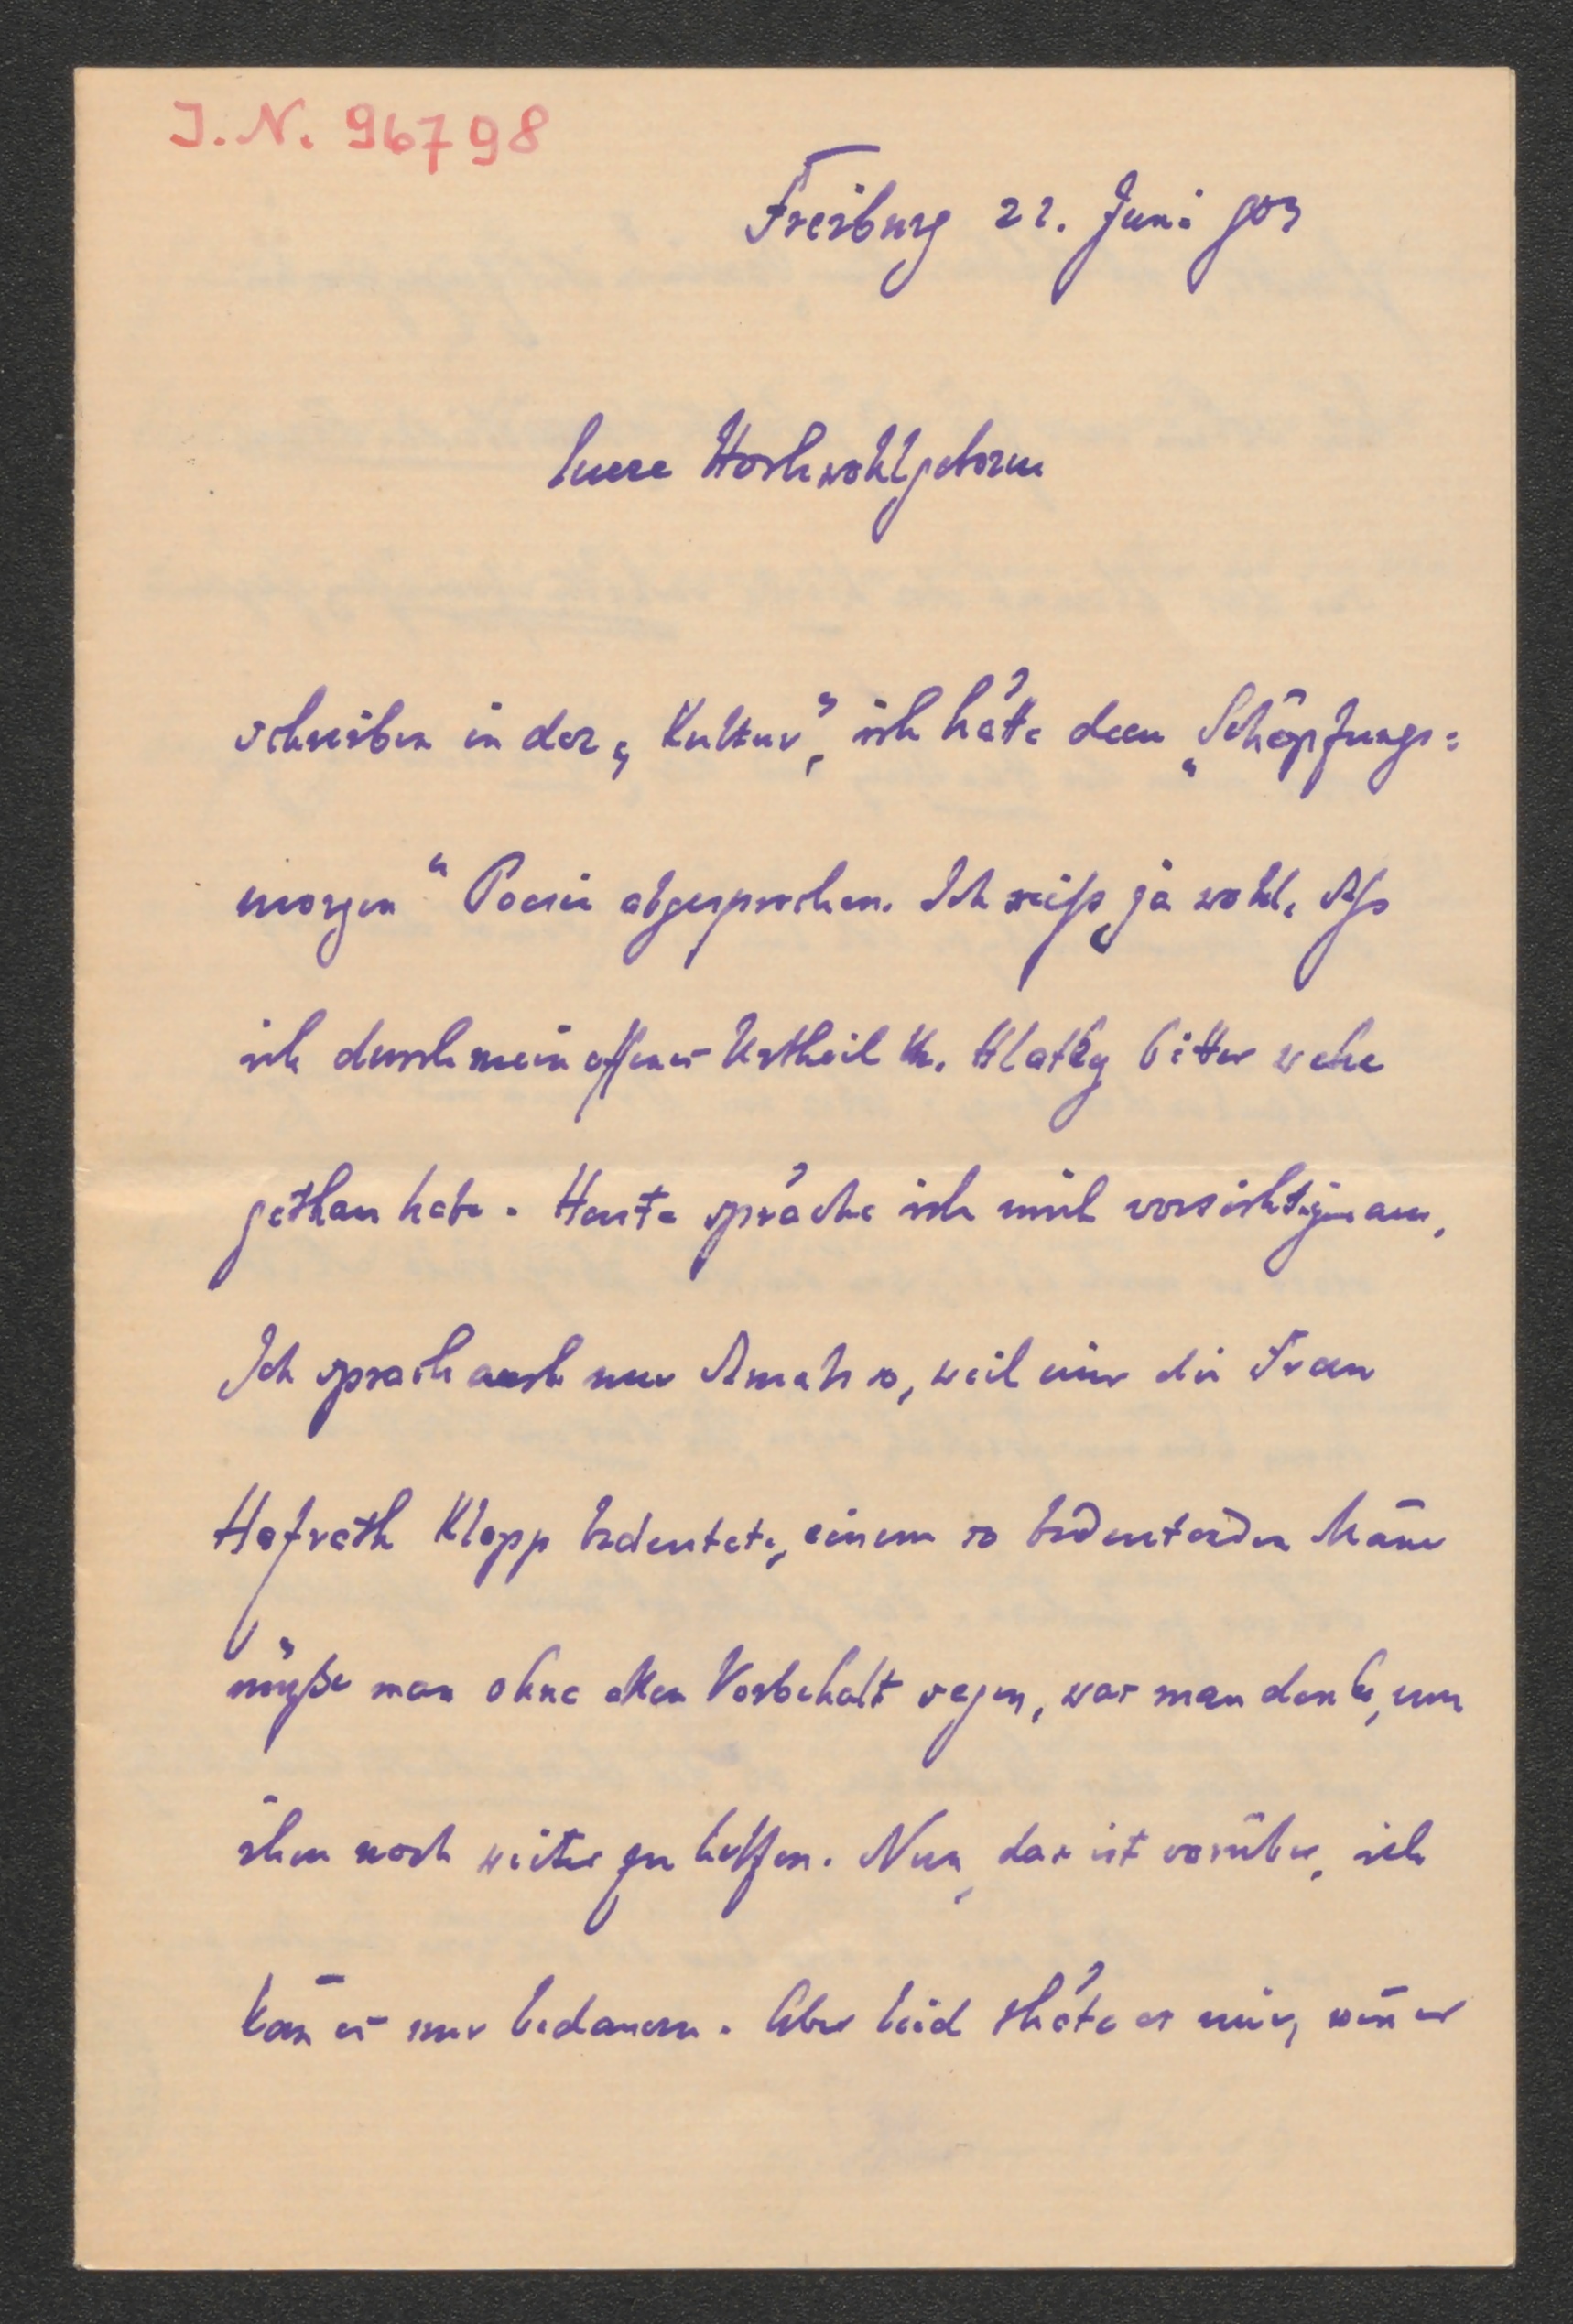 J. N. 96798
Freiburg 22. Juni 903
Euere Hochwohlgeboren
schreiben in der „Kultur“, ich hätte dem „Schöpfungs=
morgen“ Poesie abgesprochen. Ich weiß ja wohl, daß
ich durch mein offenes Urtheil Hr. Hlatky bitter wehe
gethan habe. Heute spräche ich mich vorsichtiger aus.
Ich sprach auch nur damals so, weil mir die Frau
Hofrath Klopp bedeutete, einem so bedeutenden Manne
müße man ohne allen Vorbehalt sagen, was man denke, um
ihm noch weiter zu helfen. Nun, das ist vorüber, ich
kañ es nur bedauern. Aber leid thäte es mir, weñ er